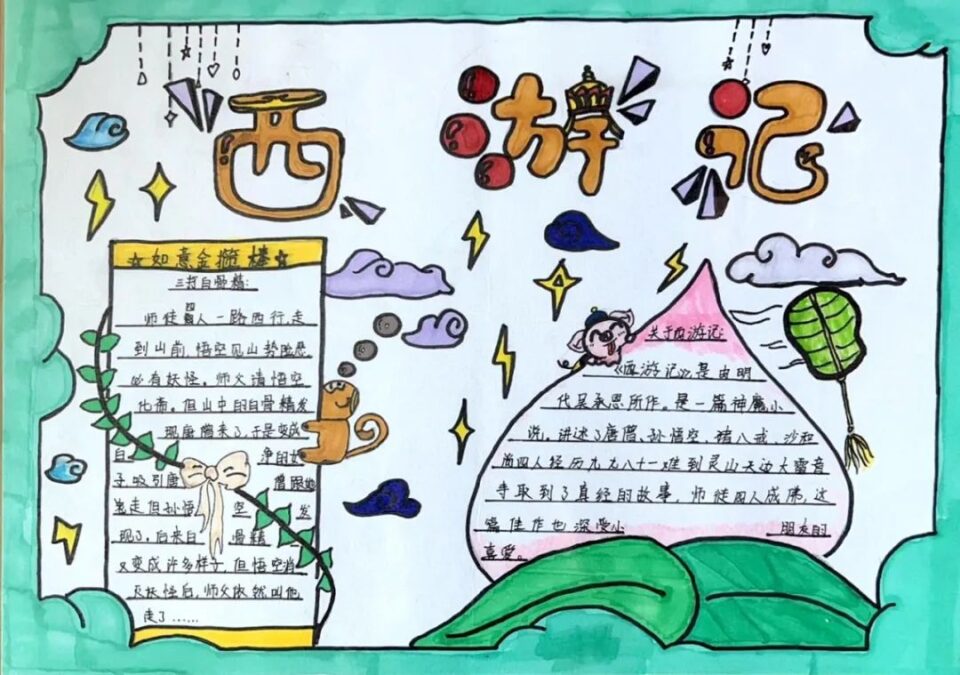 西游记
如意金箍棒
三打白骨精:
师徒四人一路西行,走
到山前,悟空见山势险恶
必有妖怪。师父请悟空
化斋。但山中的白骨精发
现唐僧来了,于是变成
白 净的女
子吸引唐 僧跟她
出走但孙悟 空 发
现了,后来白 骨精
又变成许多样子,但悟空消
灭妖怪后,师父依然叫他
走了……
关于西游记:
《西游记》是由明
代吴承思所作。是一篇神魔小
说,讲述了唐僧、孙悟空、猪八戒、沙和
尚四人经历九九八十一难到灵山天边大雷音
寺取到了真经的故事,师徒四人成佛,这
篇佳作也深受小 朋友的
喜爱。